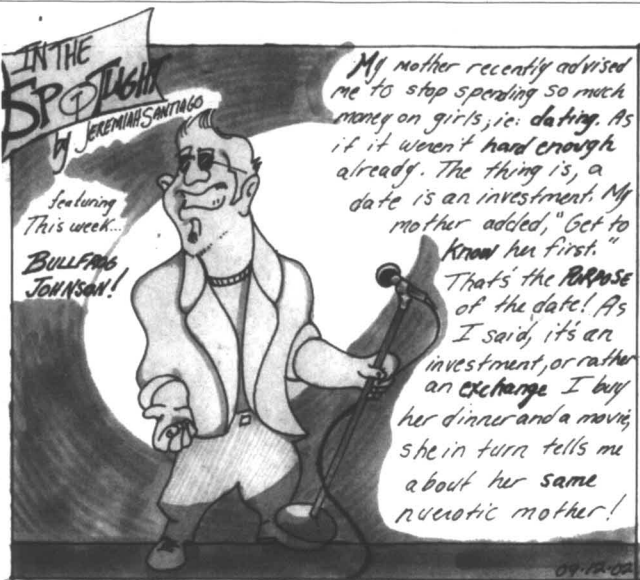 IN THE
SPOTLIGHT
by JEREMIAH SANTIAGO
featuring
This week...
BULLFROG
JOHNSON!
My mother recently advised
me to stop spending so much
money on girls, ie: dating. As
if it weren't hard enough
already. The thing is, a
date is an investment. My
mother added, "Get to
know her first."
That's the PURPOSE
of the date! As
I said, it's an
investment, or rather
an exchange I buy
her dinner and a movie,
she in turn tells me
about her same
nuerotic mother!
09-12-02